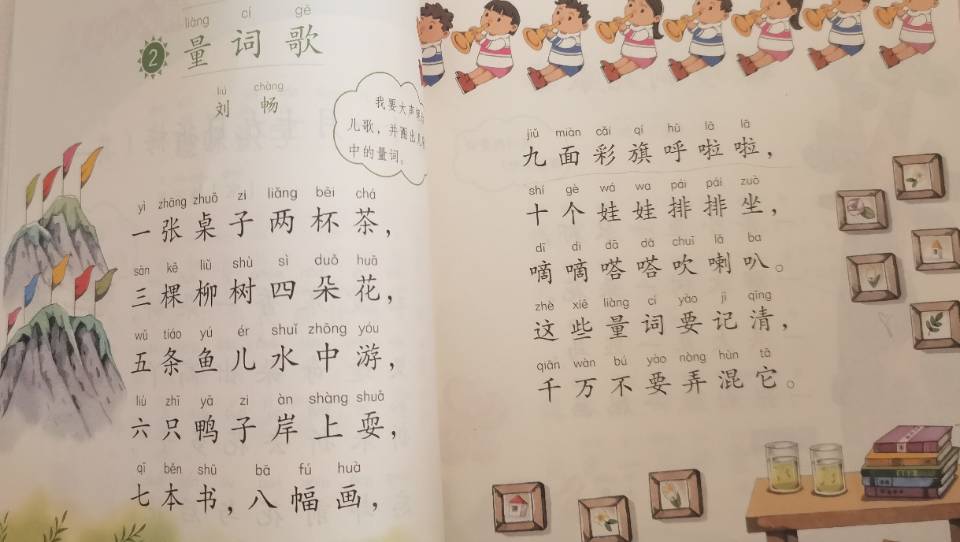 liàng cí gē
2 量词歌
liú chàng
刘 畅
我要大声
儿歌，并圈出儿
中的量词。
yì zhāng zhuō zi liǎng bēi chá
一张桌子两杯茶，
sān kē liǔ shù sì duǒ huā
三棵柳树四朵花，
wǔ tiáo yú ér shuǐ zhōng yóu
五条鱼儿水中游，
liù zhī yā zi àn shàng shuǎ
六只鸭子岸上耍，
qī běn shū bā fú huà
七本书，八幅画，
jiǔ miàn cǎi qí hū lā lā
九面彩旗呼啦啦，
shí gè wá wa pái pái zuò
十个娃娃排排坐，
dī di dā dā chuī lǎ ba
嘀嘀嗒嗒吹喇叭。
zhè xiē liàng cí yào jì qīng
这些量词要记清，
qiān wàn bú yào nòng hùn tā
千万不要弄混它。